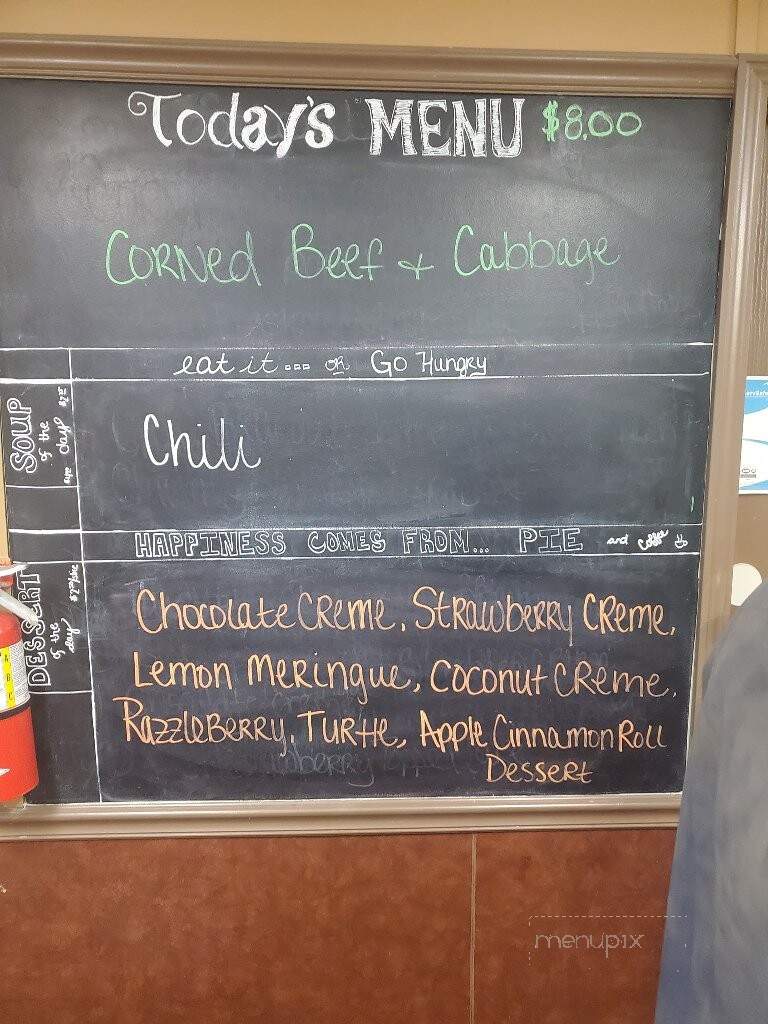 Today's MENU $8.00
Corned Beef & Cabbage
eat it... or Go Hungry
SOUP
of the
day
Chili
HAPPINESS COMES FROM... PIE and Coffee
DESSERT
of the
day
Chocolate Creme, Strawberry Creme,
Lemon Meringue, Coconut Creme,
RazzleBerry, Turtle, Apple Cinnamon Roll
Dessert
menupix